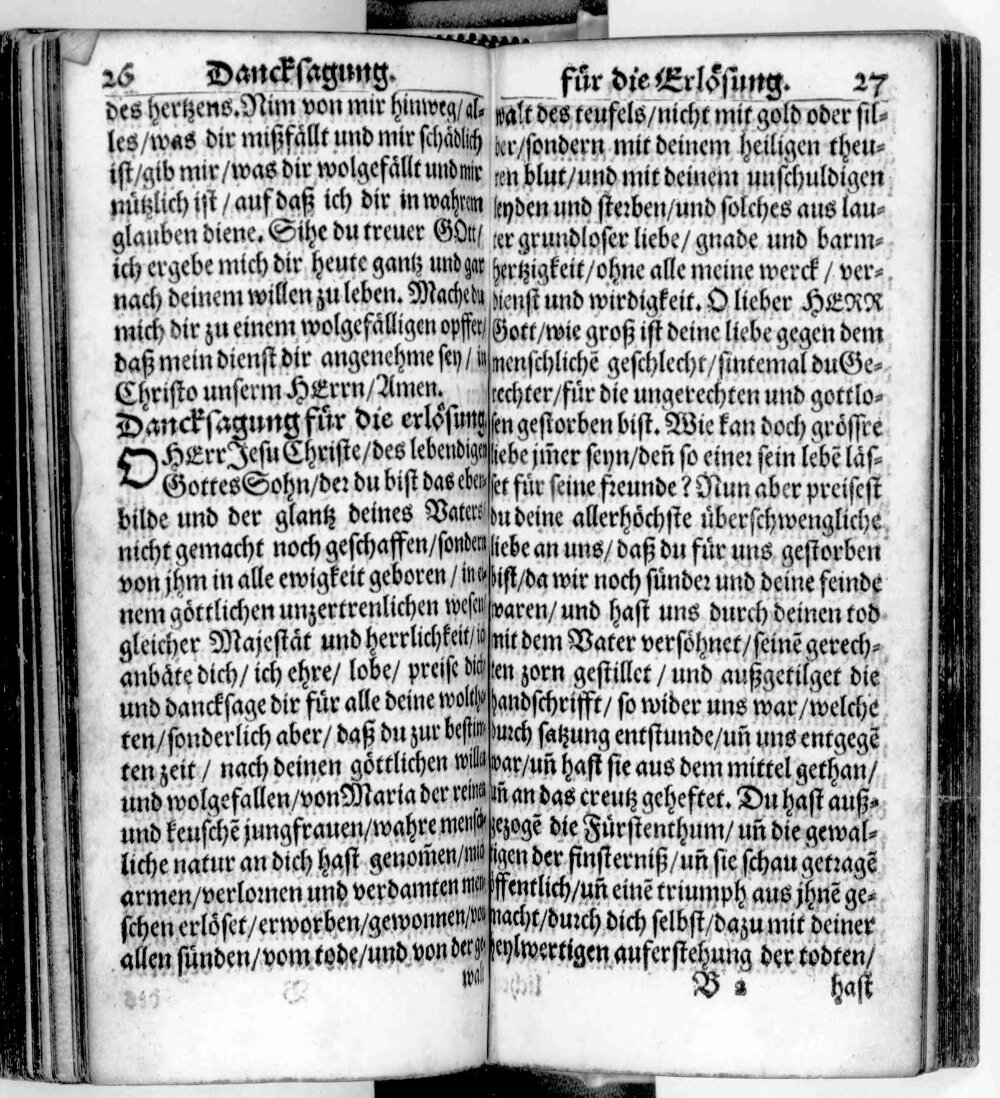 26 Dancksagung.
des hertzens. Nim von mir hinweg/al-
les/was dir mißfällt und mir schädlich
ist/gib mir/was dir wolgefällt und mir
nützlich ist/auf daß ich dir in wahrem
glauben diene. Sihe du treuer GOtt/
ich ergebe mich dir heute gantz und gar
nach deinem willen zu leben. Mache du
mich dir zu einem wolgefälligen opffer/
daß mein dienst dir angenehme sey/in
Christo unserm HErrn/Amen.
Dancksagung für die erlösung.
O HErr Jesu Christe/des lebendigen
Gottes Sohn/der du bist das eben-
bilde und der glantz deines Vaters
nicht gemacht noch geschaffen/sondern
von jhm in alle ewigkeit geboren/in ei-
nem göttlichen unzertrenlichen wesen/
gleicher Majestät und herrlichkeit/ich
anbäte dich/ich ehre/lobe/preise dich/
und dancksage dir für alle deine woltha-
ten/sonderlich aber/daß du zur bestim-
ten zeit/nach deinen göttlichen willen
und wolgefallen/von Maria der reinen
und keuschẽ jungfrauen/wahre mensch-
liche natur an dich hast genom̃en/mich
armen/verlornen und verdamten men-
schen erlöset/erworben/gewonnen/von
allen sünden/vom tode/und von der ge-
walt
für die Erlösung. 27
walt des teufels/nicht mit gold oder sil-
ber/sondern mit deinem heiligen theu-
ren blut/und mit deinem unschuldigen
leyden und sterben/und solches aus lau-
ter grundloser liebe/gnade und barm-
hertzigkeit/ohne alle meine werck/ver-
dienst und wirdigkeit. O lieber HERR
Gott/wie groß ist deine liebe gegen dem
menschlichẽ geschlecht/sintemal du Ge-
rechter/für die ungerechten und gottlo-
sen gestorben bist. Wie kan doch grössre
liebe jm̃er seyn/deñ so einer sein lebẽ läs-
set für seine freunde? Nun aber preisest
du deine allerhöchste überschwengliche
liebe an uns/daß du für uns gestorben
bist/da wir noch sünder und deine feinde
waren/und hast uns durch deinen tod
mit dem Vater versöhnet/seinẽ gerech-
ten zorn gestillet/und außgetilget die
handschrifft/so wider uns war/welche
durch satzung entstunde/uñ uns entgegẽ
war/uñ hast sie aus dem mittel gethan/
uñ an das creutz geheftet. Du hast auß-
gezogẽ die Fürstenthum/uñ die gewal-
tigen der finsterniß/uñ sie schau getragẽ
öffentlich/uñ einẽ triumph aus jhnẽ ge-
macht/durch dich selbst/dazu mit deiner
heylwertigen auferstehung der todten/
B 2 hast